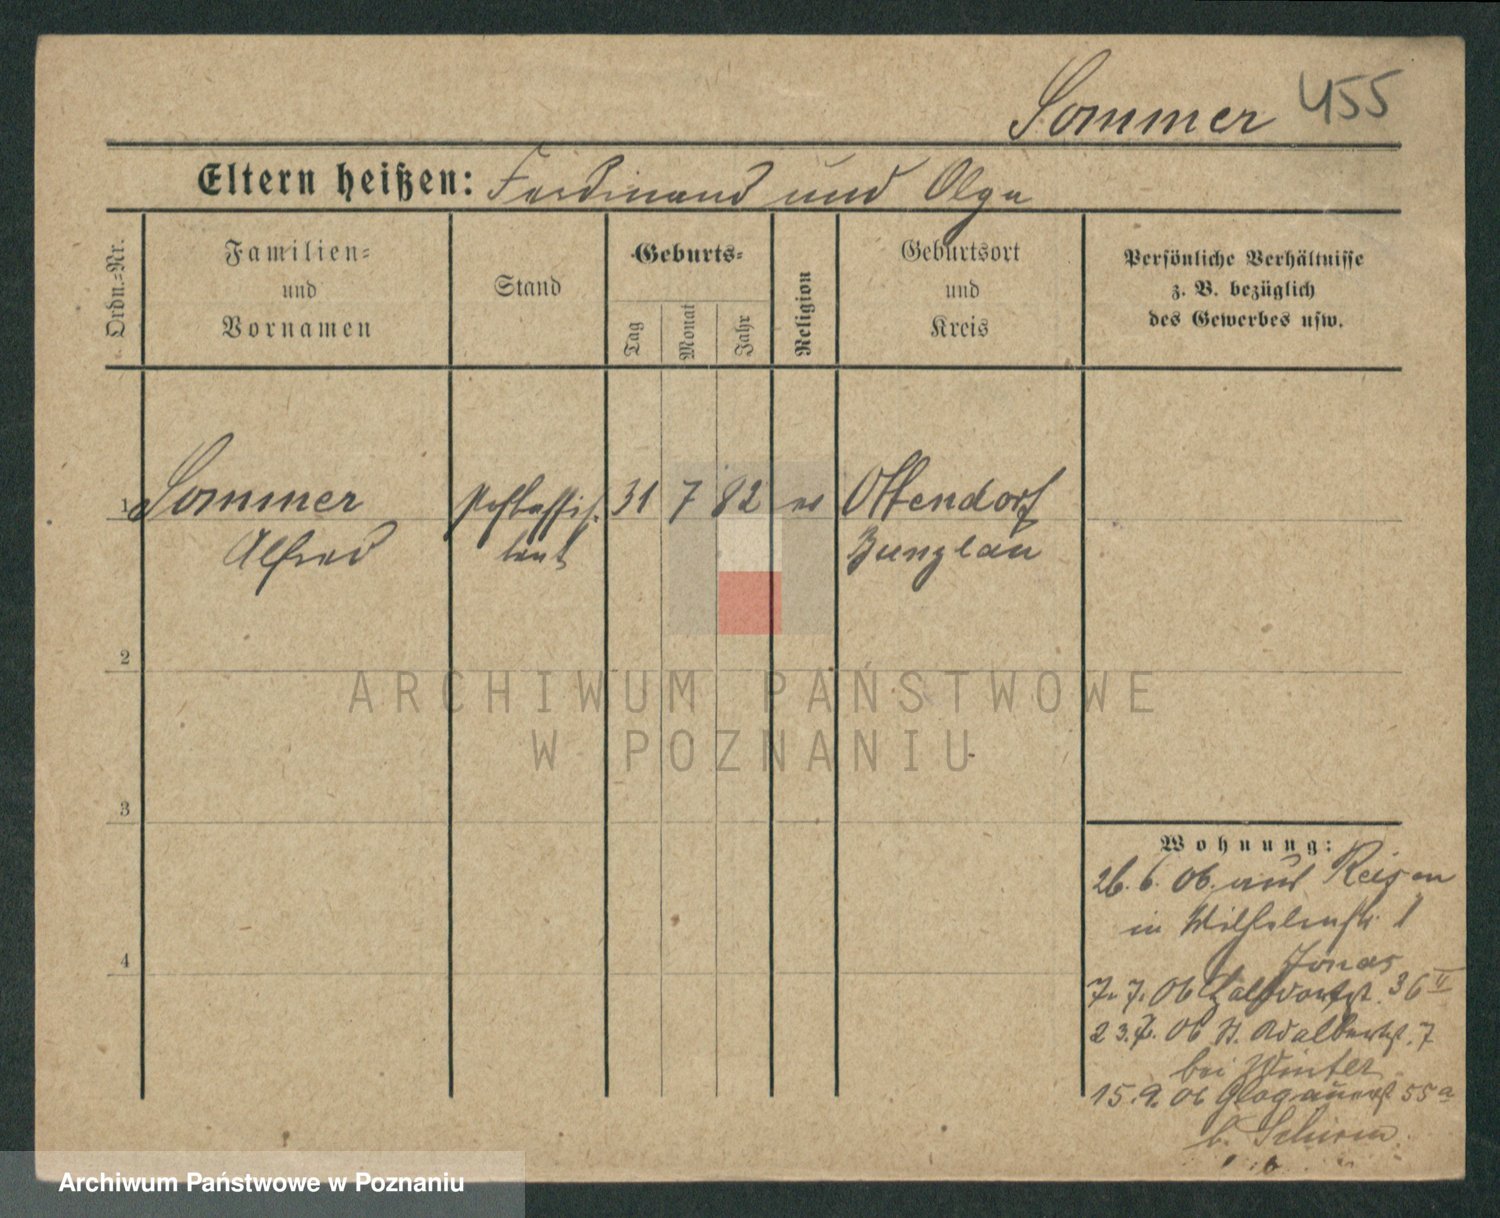 Sommer 455
Eltern heißen: Ferdinand und Olga
Ordn.-Nr.
Familien- und Vornamen
Stand
Geburts-
Tag
Monat
Jahr
Religion
Geburtsort und Kreis
Persönliche Verhältnisse
z. B. bezüglich
des Gewerbes usw.
1 Sommer Postassis- 31 7 82 ev Ottendorf
Alfred tent Bunzlau
2
ARCHIWUM PAŃSTWOWE
W POZNANIU
3
Wohnung:
26. 6. 06. aus Reisen
in Wilhelmstr. 1
Jonas
7. 7. 06 36 II
23. 7. 06 St. Adalbertst. 7
bei Winter
15. 9. 06 Glogauerst 55a
b. Schirm
4
Archiwum Państwowe w Poznaniu